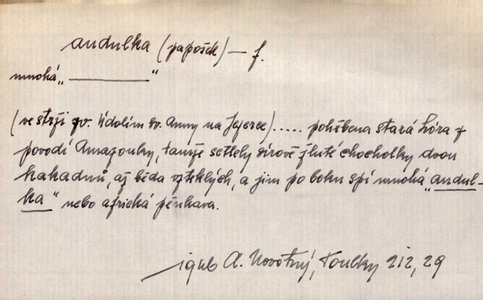 andulka (papošek) — f.
mnohá „ ———— "
(ve strži zv. Údolím sv. Anny na Jezerce)..... pohřbena stará Lóra z
povodí Amazonky, tamže setlely sírově žluté chocholky dvou
kakaduů, až běda vzteklých, a jim po boku spí mnohá „andul-
ka" nebo africká pěnkava.
A. Novotný, Toulky 212, 29